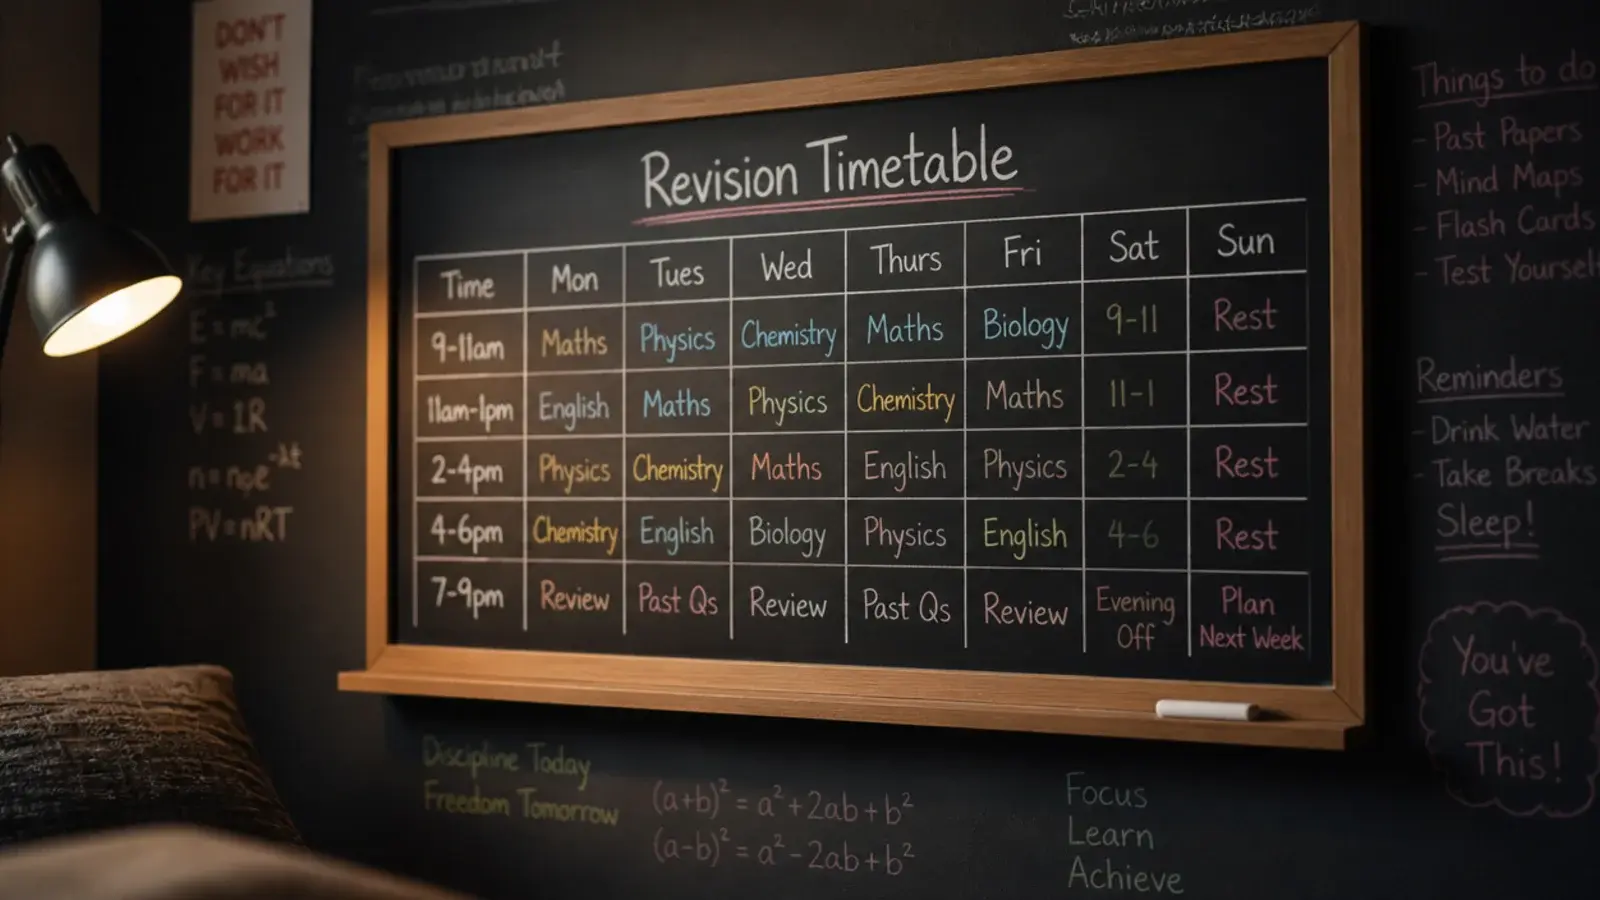 DON'T
WISH
FOR IT
WORK
FOR IT
Key Equations
E = mc²
F = ma
V = IR
n = n₀e^-λt
PV = nRT
Revision Timetable
Time Mon Tues Wed Thurs Fri Sat Sun
9-11am Maths Physics Chemistry Maths Biology 9-11 Rest
11am-1pm English Maths Physics Chemistry Maths 11-1 Rest
2-4pm Physics Chemistry Maths English Physics 2-4 Rest
4-6pm Chemistry English Biology Physics English 4-6 Rest
7-9pm Review Past Qs Review Past Qs Review Evening Off Plan Next Week
Things to do
- Past Papers
- Mind Maps
- Flash Cards
- Test Yoursel
Reminders
- Drink Water
- Take Breaks
Sleep!
You've
Got
This!
Discipline Today
Freedom Tomorrow
(a+b)² = a² + 2ab + b²
(a-b)² = a² - 2ab + b²
Focus
Learn
Achieve